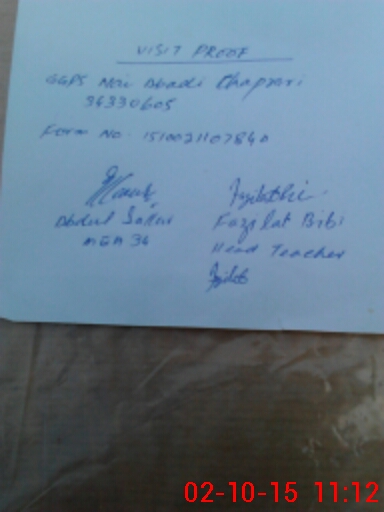 VISIT PROOF
GGPS Noi Abadi Chaprari
34330605
Form No. 151002110784
Abdul Sattar
MEA 34
Fazilat Bibi
Head Teacher
02-10-15 11:12